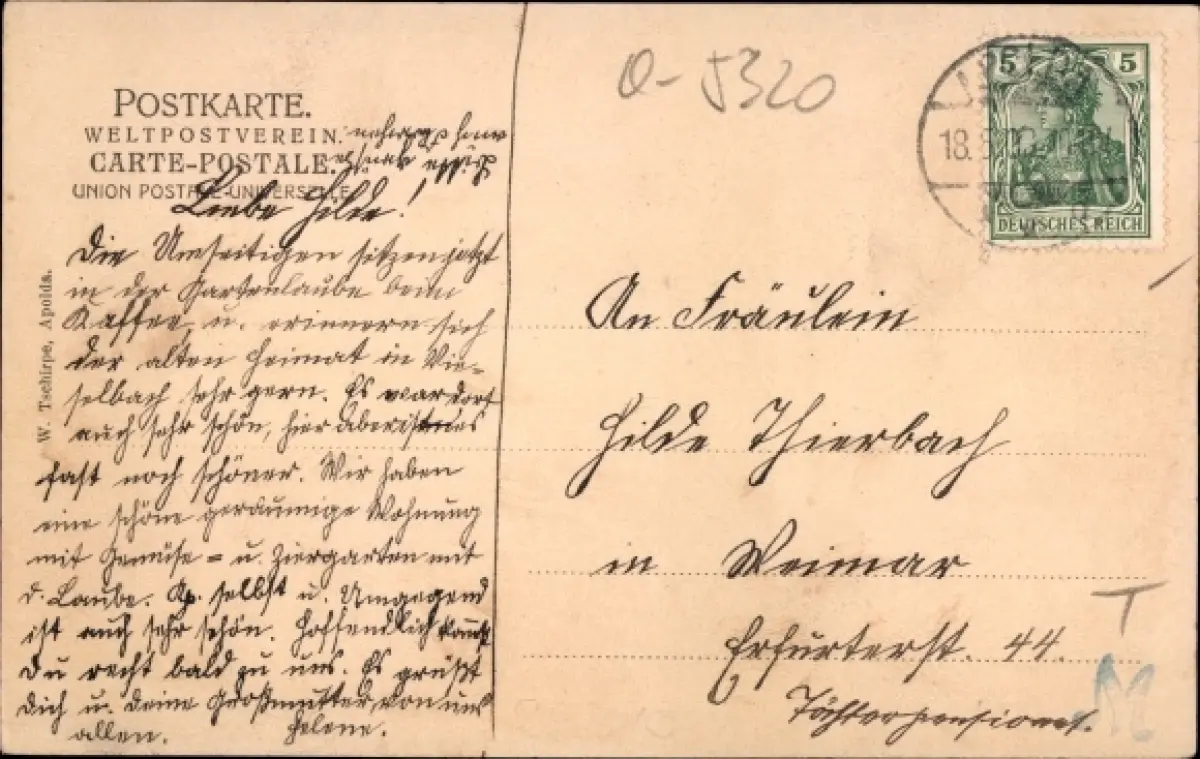 POSTKARTE.
WELTPOSTVEREIN.
CARTE-POSTALE.
UNION POSTALE UNIVERSELLE
W. Tschirpe, Apolda.
Liebe Hilde!
Die Umseitigen sitzen jetzt
in der Gartenlaube beim
Kaffee u. erinnern sich
der alten Heimat in Vie-
selbach sehr gern. Es war dort
auch sehr schön, hier aber ist es
fast noch schöner. Wir haben
eine schöne geräumige Wohnung
mit Gemüse- u. Ziergarten mit
d. Laube. Ap. selbst u. Umgegend
ist auch sehr schön. Hoffentlich kommst
Du recht bald zu uns. Es grüßt
Dich u. deine Großmutter von uns
allen. Helene.
O-5320
18.
5 5
DEUTSCHES REICH
An Fräulein
Hilde Thierbach
in Weimar
Erfurterst. 44.
Töchterpensionat.
T